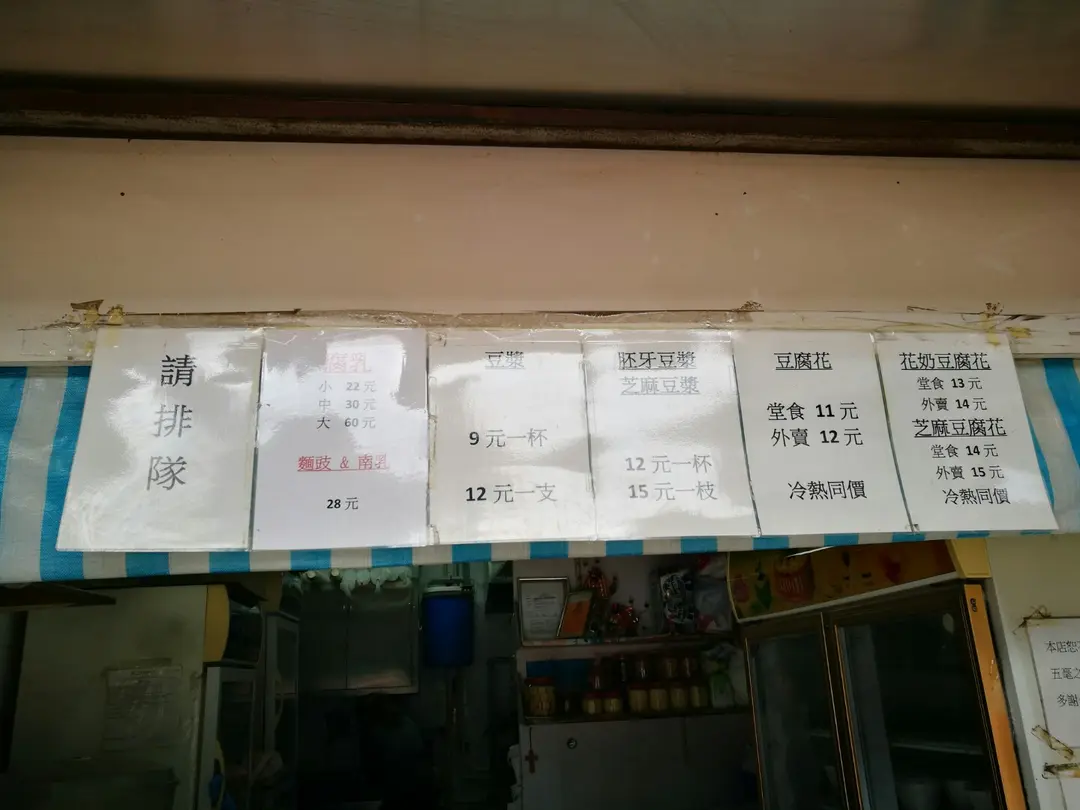 請
排
隊
腐乳
小 22 元
中 30 元
大 60 元
麵豉 & 南乳
28 元
豆漿
9 元一杯
12 元一支
胚牙豆漿
芝麻豆漿
12 元一杯
15 元一枝
豆腐花
堂食 11 元
外賣 12 元
冷熱同價
花奶豆腐花
堂食 13 元
外賣 14 元
芝麻豆腐花
堂食 14 元
外賣 15 元
冷熱同價
本店恕
五毫之
多謝